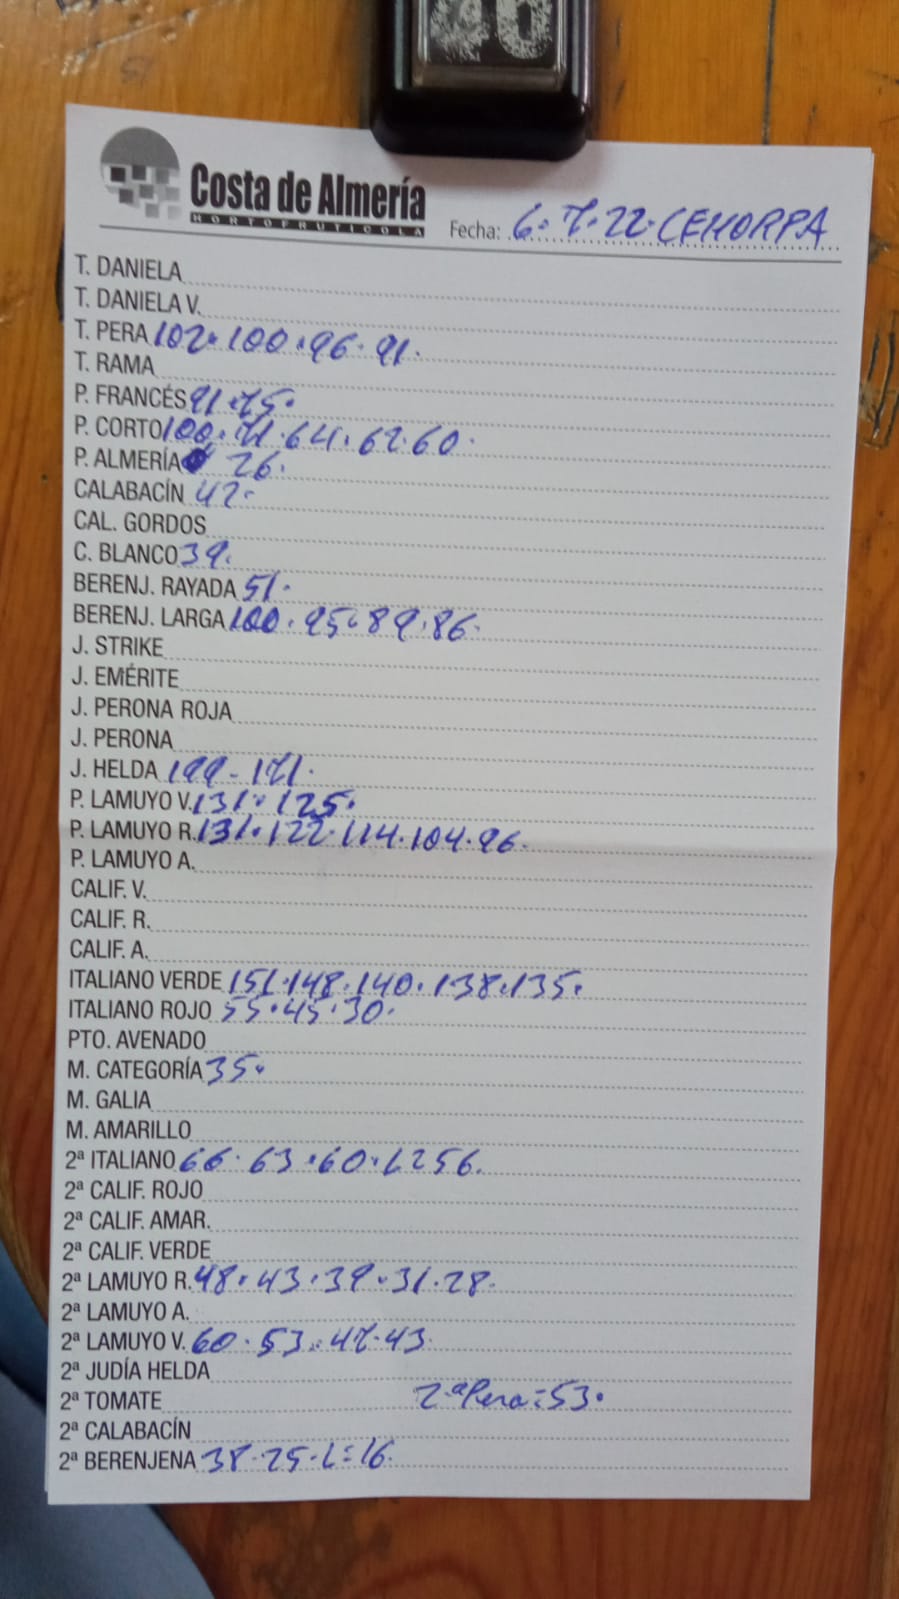 Costa de Almería
HORTOFRUTICOLA
Fecha: 6.7.22.CEHORPA
T. DANIELA
T. DANIELA V.
T. PERA 102.100.96.91.
T. RAMA
P. FRANCÉS 91.75.
P. CORTO 100.71.64.62.60.
P. ALMERÍA 26.
CALABACÍN 42.
CAL. GORDOS
C. BLANCO 39.
BERENJ. RAYADA 51.
BERENJ. LARGA 100.95.89.86.
J. STRIKE
J. EMÉRITE
J. PERONA ROJA
J. PERONA
J. HELDA 199-171.
P. LAMUYO V. 131.125.
P. LAMUYO R. 131.122.114.104.96.
P. LAMUYO A.
CALIF. V.
CALIF. R.
CALIF. A.
ITALIANO VERDE 151.148.140.138.135.
ITALIANO ROJO 55.45.30.
PTO. AVENADO
M. CATEGORÍA 35.
M. GALIA
M. AMARILLO
2ª ITALIANO 66.63.60. 56.
2ª CALIF. ROJO
2ª CALIF. AMAR.
2ª CALIF. VERDE
2ª LAMUYO R. 48.43.39.31.28.
2ª LAMUYO A.
2ª LAMUYO V. 60.53.47.43
2ª JUDÍA HELDA
2ª TOMATE 2ªPera=53.
2ª CALABACÍN
2ª BERENJENA 38.25.L=16.